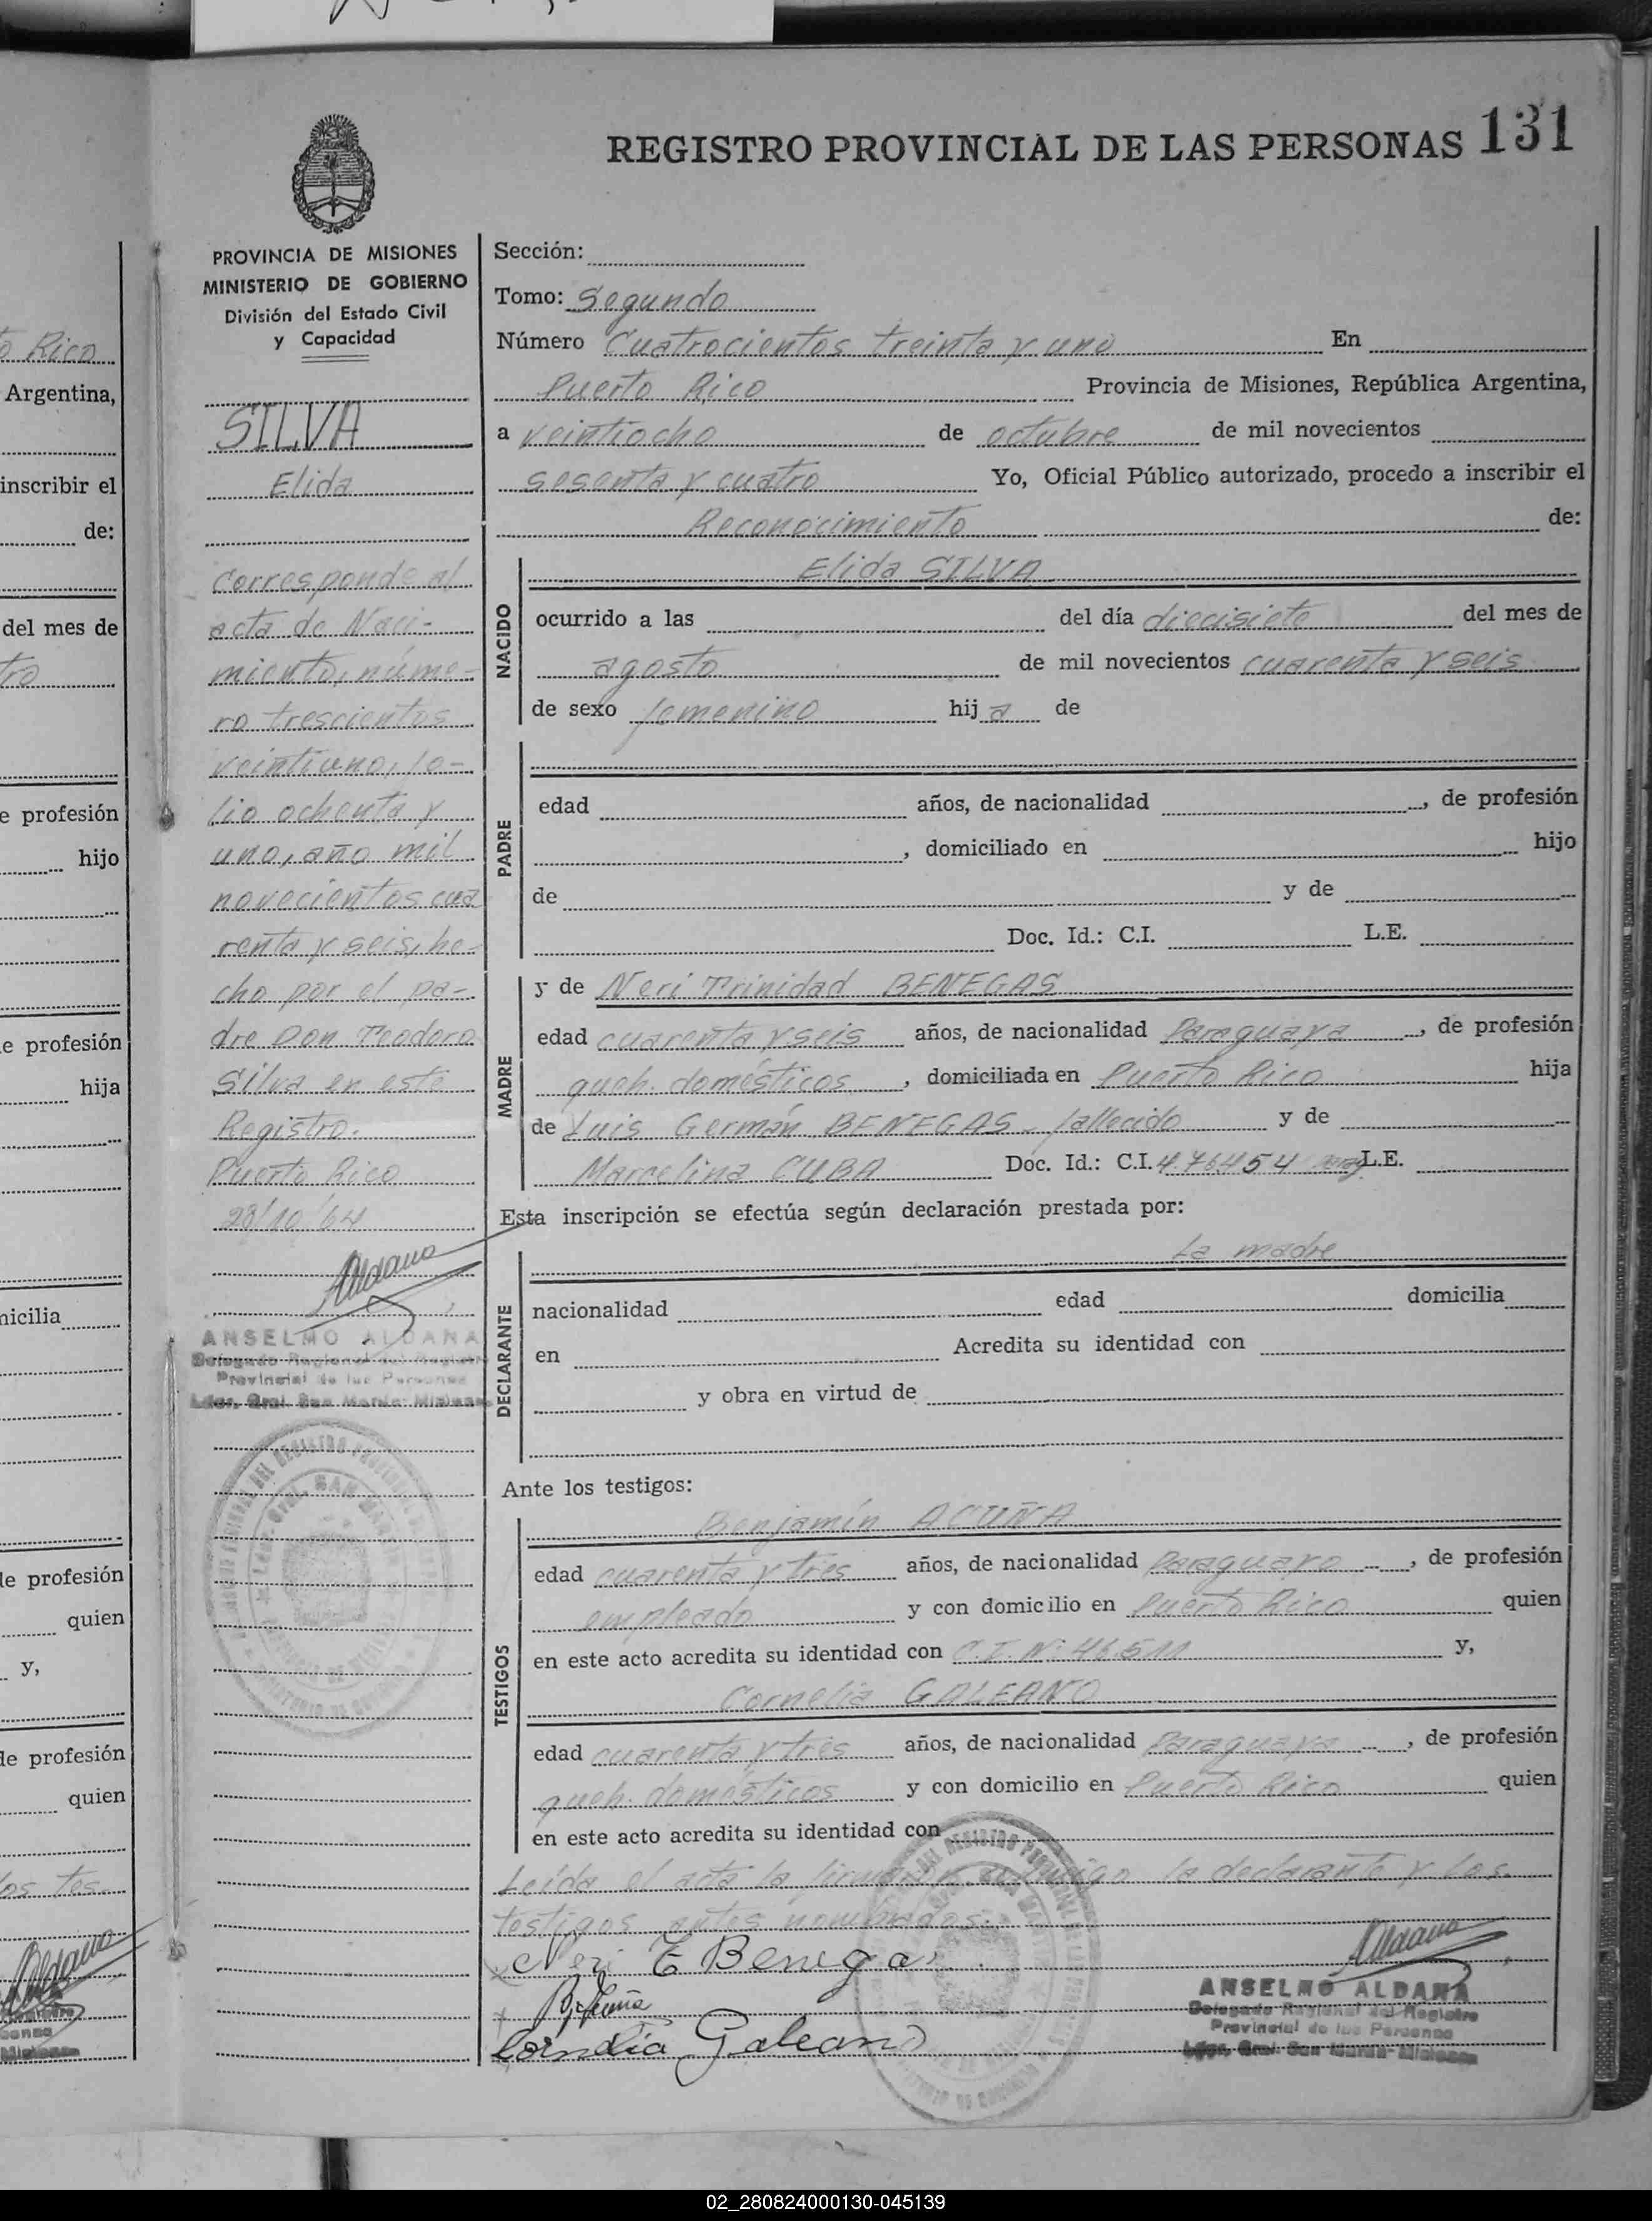 REGISTRO PROVINCIAL DE LAS PERSONAS 131
PROVINCIA DE MISIONES
MINISTERIO DE GOBIERNO
División del Estado Civil
y Capacidad
SILVA
Elida
Corresponde al
acta de Naci-
miento, núme-
ro trescientos
veintiuno, fo-
lio ochenta y
uno, año mil
novecientos cua
renta y seis, he-
cho por el pa-
dre Don Teodoro
Silva en este
Registro.
Puerto Rico
28/10/64
Aldana
ANSELMO ALDANA
Delegado Regional del Registro
Provincial de las Personas
Ldor. Gral. San Martín-Misiones
Sección:
Tomo: Segundo
Número Cuatrocientos treinta y uno En
Puerto Rico Provincia de Misiones, República Argentina,
a veintiocho de octubre de mil novecientos
sesenta y cuatro Yo, Oficial Público autorizado, procedo a inscribir el
Reconocimiento de:
NACIDO
Elida SILVA
ocurrido a las del día diecisiete del mes de
agosto de mil novecientos cuarenta y seis
de sexo femenino hij a de
PADRE
edad años, de nacionalidad , de profesión
, domiciliado en hijo
de y de
Doc. Id.: C.I. L.E.
MADRE
y de Neri Trinidad BENEGAS
edad cuarenta y seis años, de nacionalidad Paraguaya , de profesión
queh. domésticos , domiciliada en Puerto Rico hija
de Luis Germán BENEGAS - fallecido y de
Marcelina CUBA Doc. Id.: C.I. 476454 L.E.
Esta inscripción se efectúa según declaración prestada por:
DECLARANTE
La madre
nacionalidad edad domicilia
en Acredita su identidad con
y obra en virtud de
Ante los testigos:
TESTIGOS
Benjamín ACUÑA
edad cuarenta y tres años, de nacionalidad Paraguayo , de profesión
empleado y con domicilio en Puerto Rico quien
en este acto acredita su identidad con C.I. Nº 46.511 y,
Cornelia GALEANO
edad cuarenta y tres años, de nacionalidad Paraguaya , de profesión
queh. domésticos y con domicilio en Puerto Rico quien
en este acto acredita su identidad con
Leída el acta la firmaron conmigo la declarante y los
testigos antes nombrados.
Neri T Benega
B. Acuña
Cornelia Galeano
Aldana
ANSELMO ALDANA
Delegado Regional del Registro
Provincial de las Personas
Ldor. Gral. San Martín-Misiones
o Rico
Argentina,
inscribir el
de:
del mes de
tro
e profesión
hijo
e profesión
hija
nicilia
de profesión
quien
y,
de profesión
quien
os tes
Aldana
02_280824000130-045139